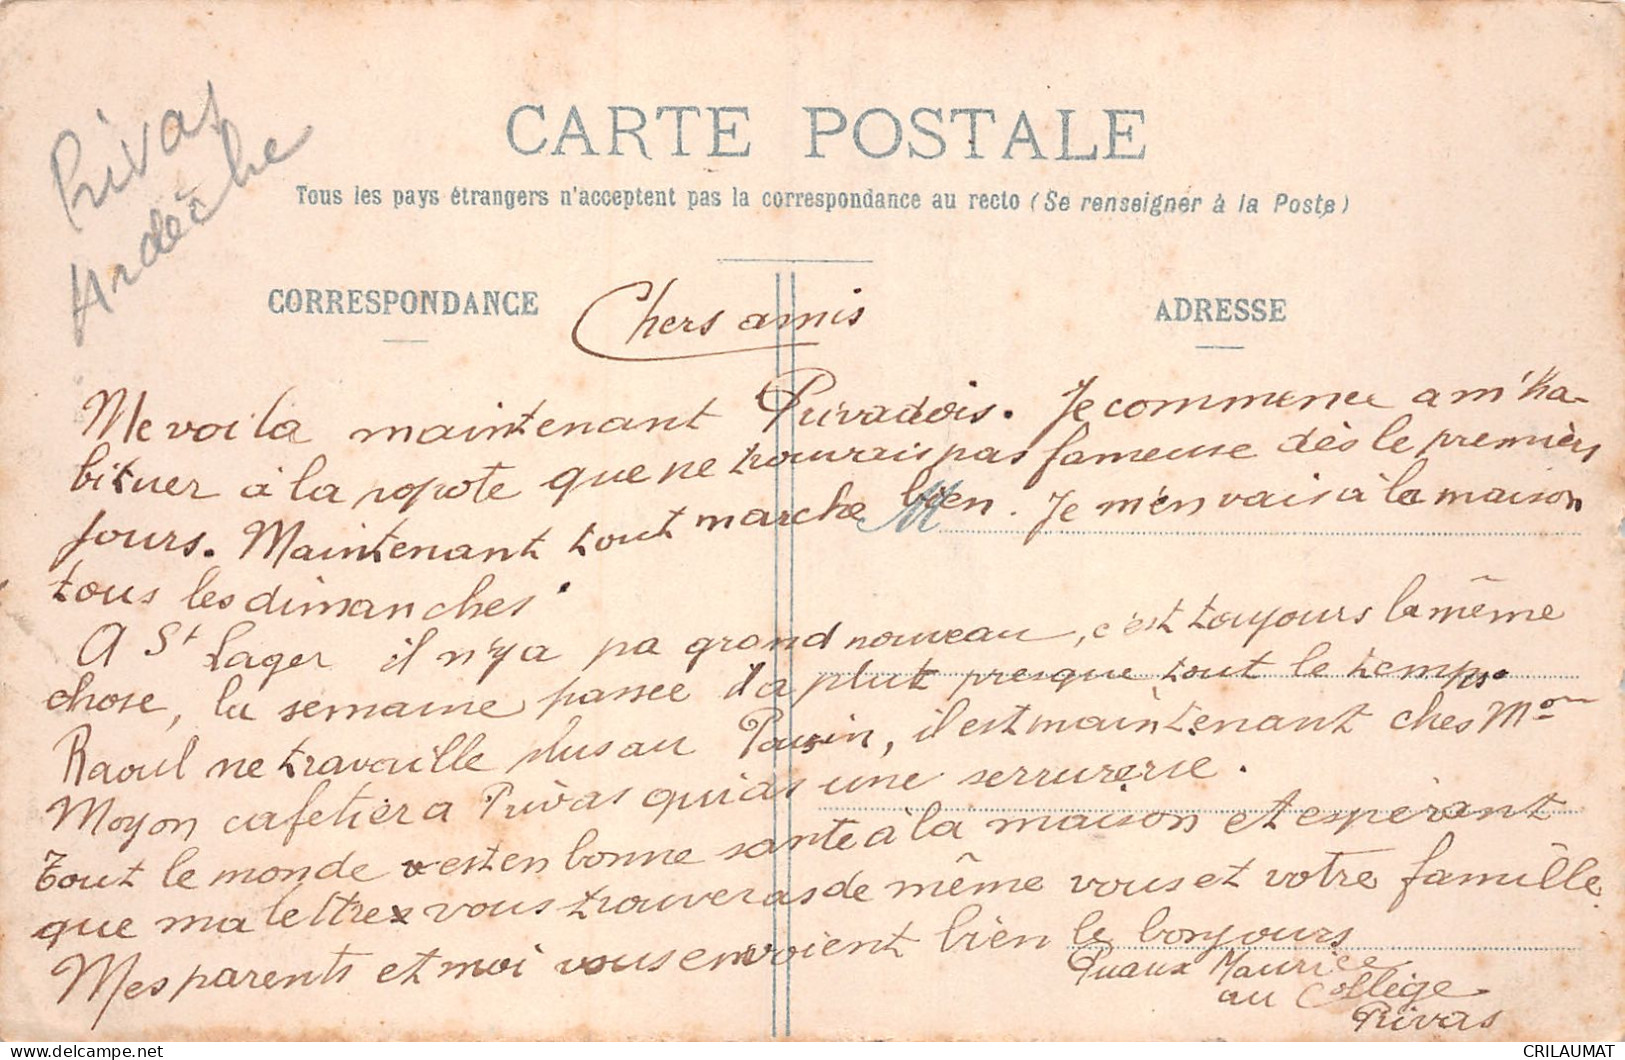 Privas
Ardèche
CARTE POSTALE
Tous les pays étrangers n'acceptent pas la correspondance au recto (Se renseigner à la Poste)
CORRESPONDANCE
ADRESSE
Chers amis
Me voila maintenant Privadois. Je commence a m'ha-
bituer à la popote que ne trouvrais pas fameuse dès le premiers
jours. Maintenant tout marche bien. Je m'en vais à la maison
M
tous les dimanches.
A St Lager il n'y a pa grand nouveau, c'est toujours la même
chose, la semaine passee il a plut presque tout le temps.
Raoul ne travaille plus au Pouzin, il est maintenant ches Mon
Moyon cafetier a Privas qui as une serrurerie.
Tout le monde est en bonne sante à la maison et esperant
que ma lettre vous trouveras de même vous et votre famille.
Mes parents et moi vous envoient bien le bonjours
Puaux Maurice
au Collège
Privas
CRILAUMAT